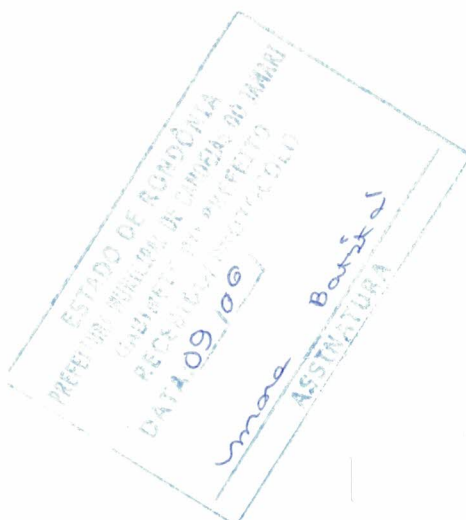 ESTADO DE RONDÔNIA
PREFEITURA MUNICIPAL DE CANDEIAS DO JAMARI
GABINETE DO PREFEITO
RECEBIDO / PROTOCOLO
DATA 09/06
Batista
ASSINATURA